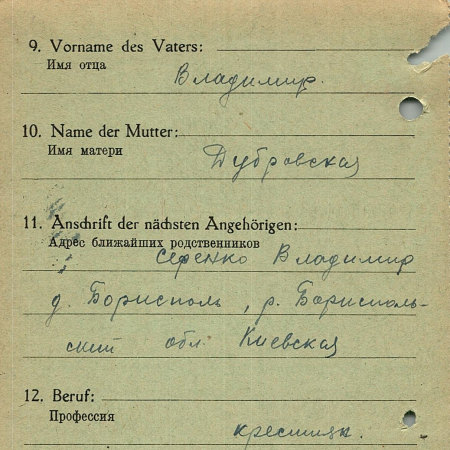 9. Vorname des Vaters:
Имя отца
Владимир.
10. Name der Mutter:
Имя матери
Дубровская
11. Anschrift der nächsten Angehörigen:
Адрес ближайших родственников
Серенко Владимир
д. Борисполь, р. Борисполь-
ский обл. Киевская
12. Beruf:
Профессия